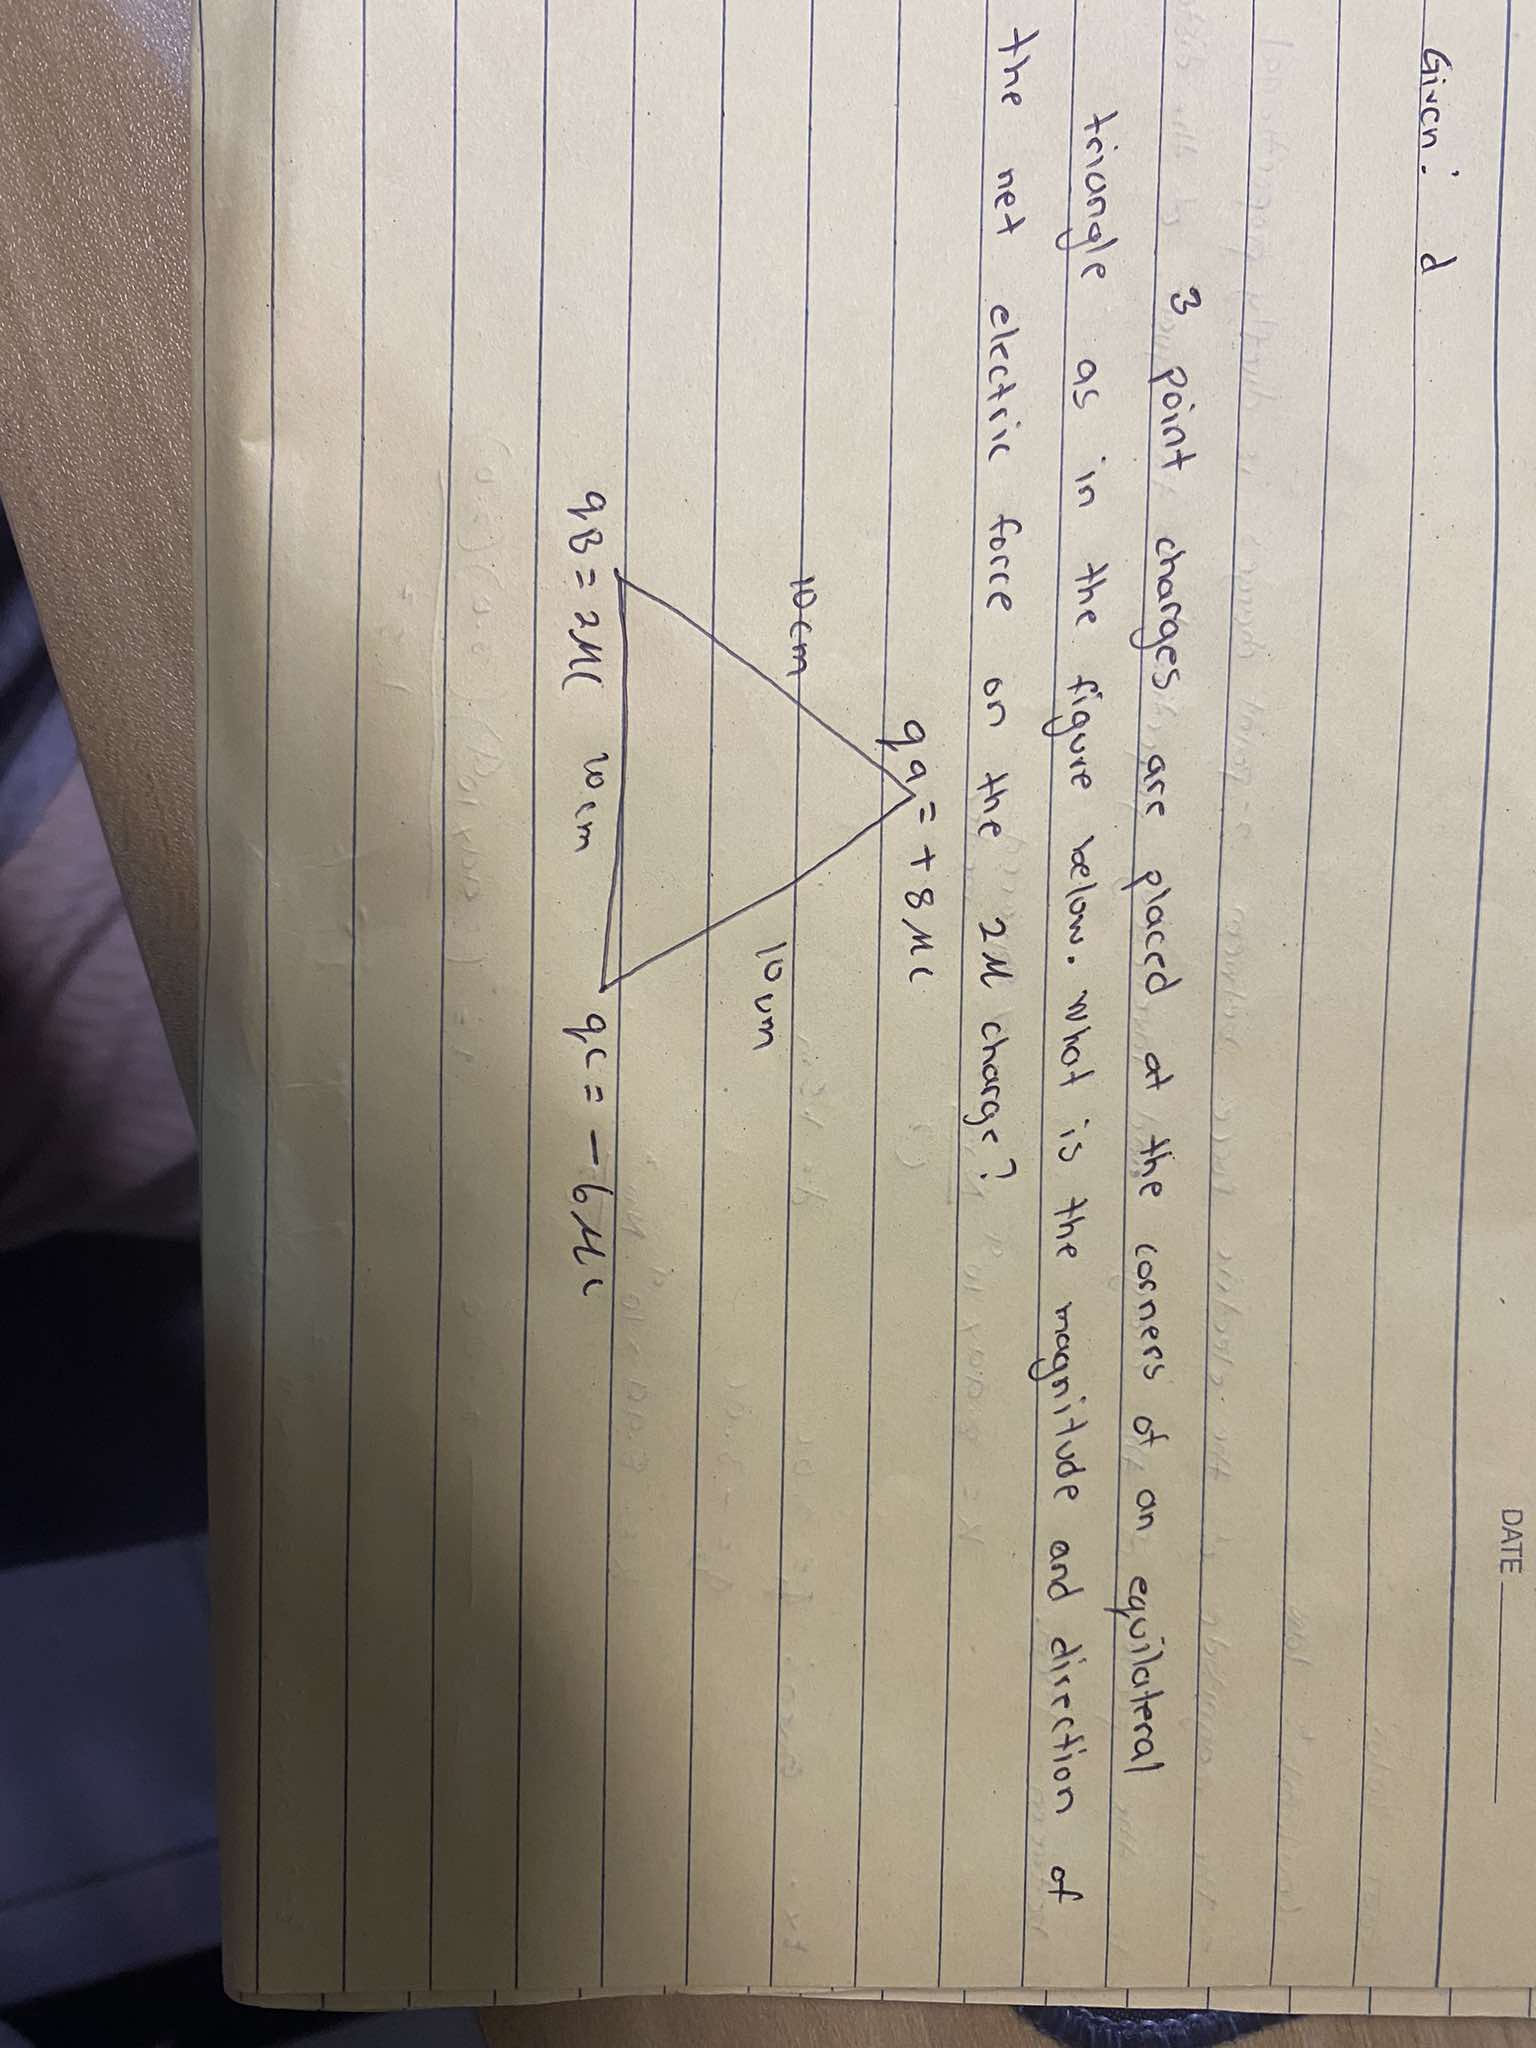 DATE
Given: d
3 point charges are placed at the corners of an equilateral
triangle as in the figure below. what is the magnitude and direction of
the net electric force on the 2M charge?
qa = +8 MC
10cm
10cm
qB = 2MC 10cm qc = -6MC